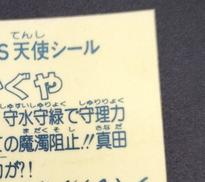 てんし
S天使シール
ぐや
しゅすいしゅりょく しゅりりょく
守水守緑で守理力
まだくそし さなだ
の魔濁阻止!!真田
が?!